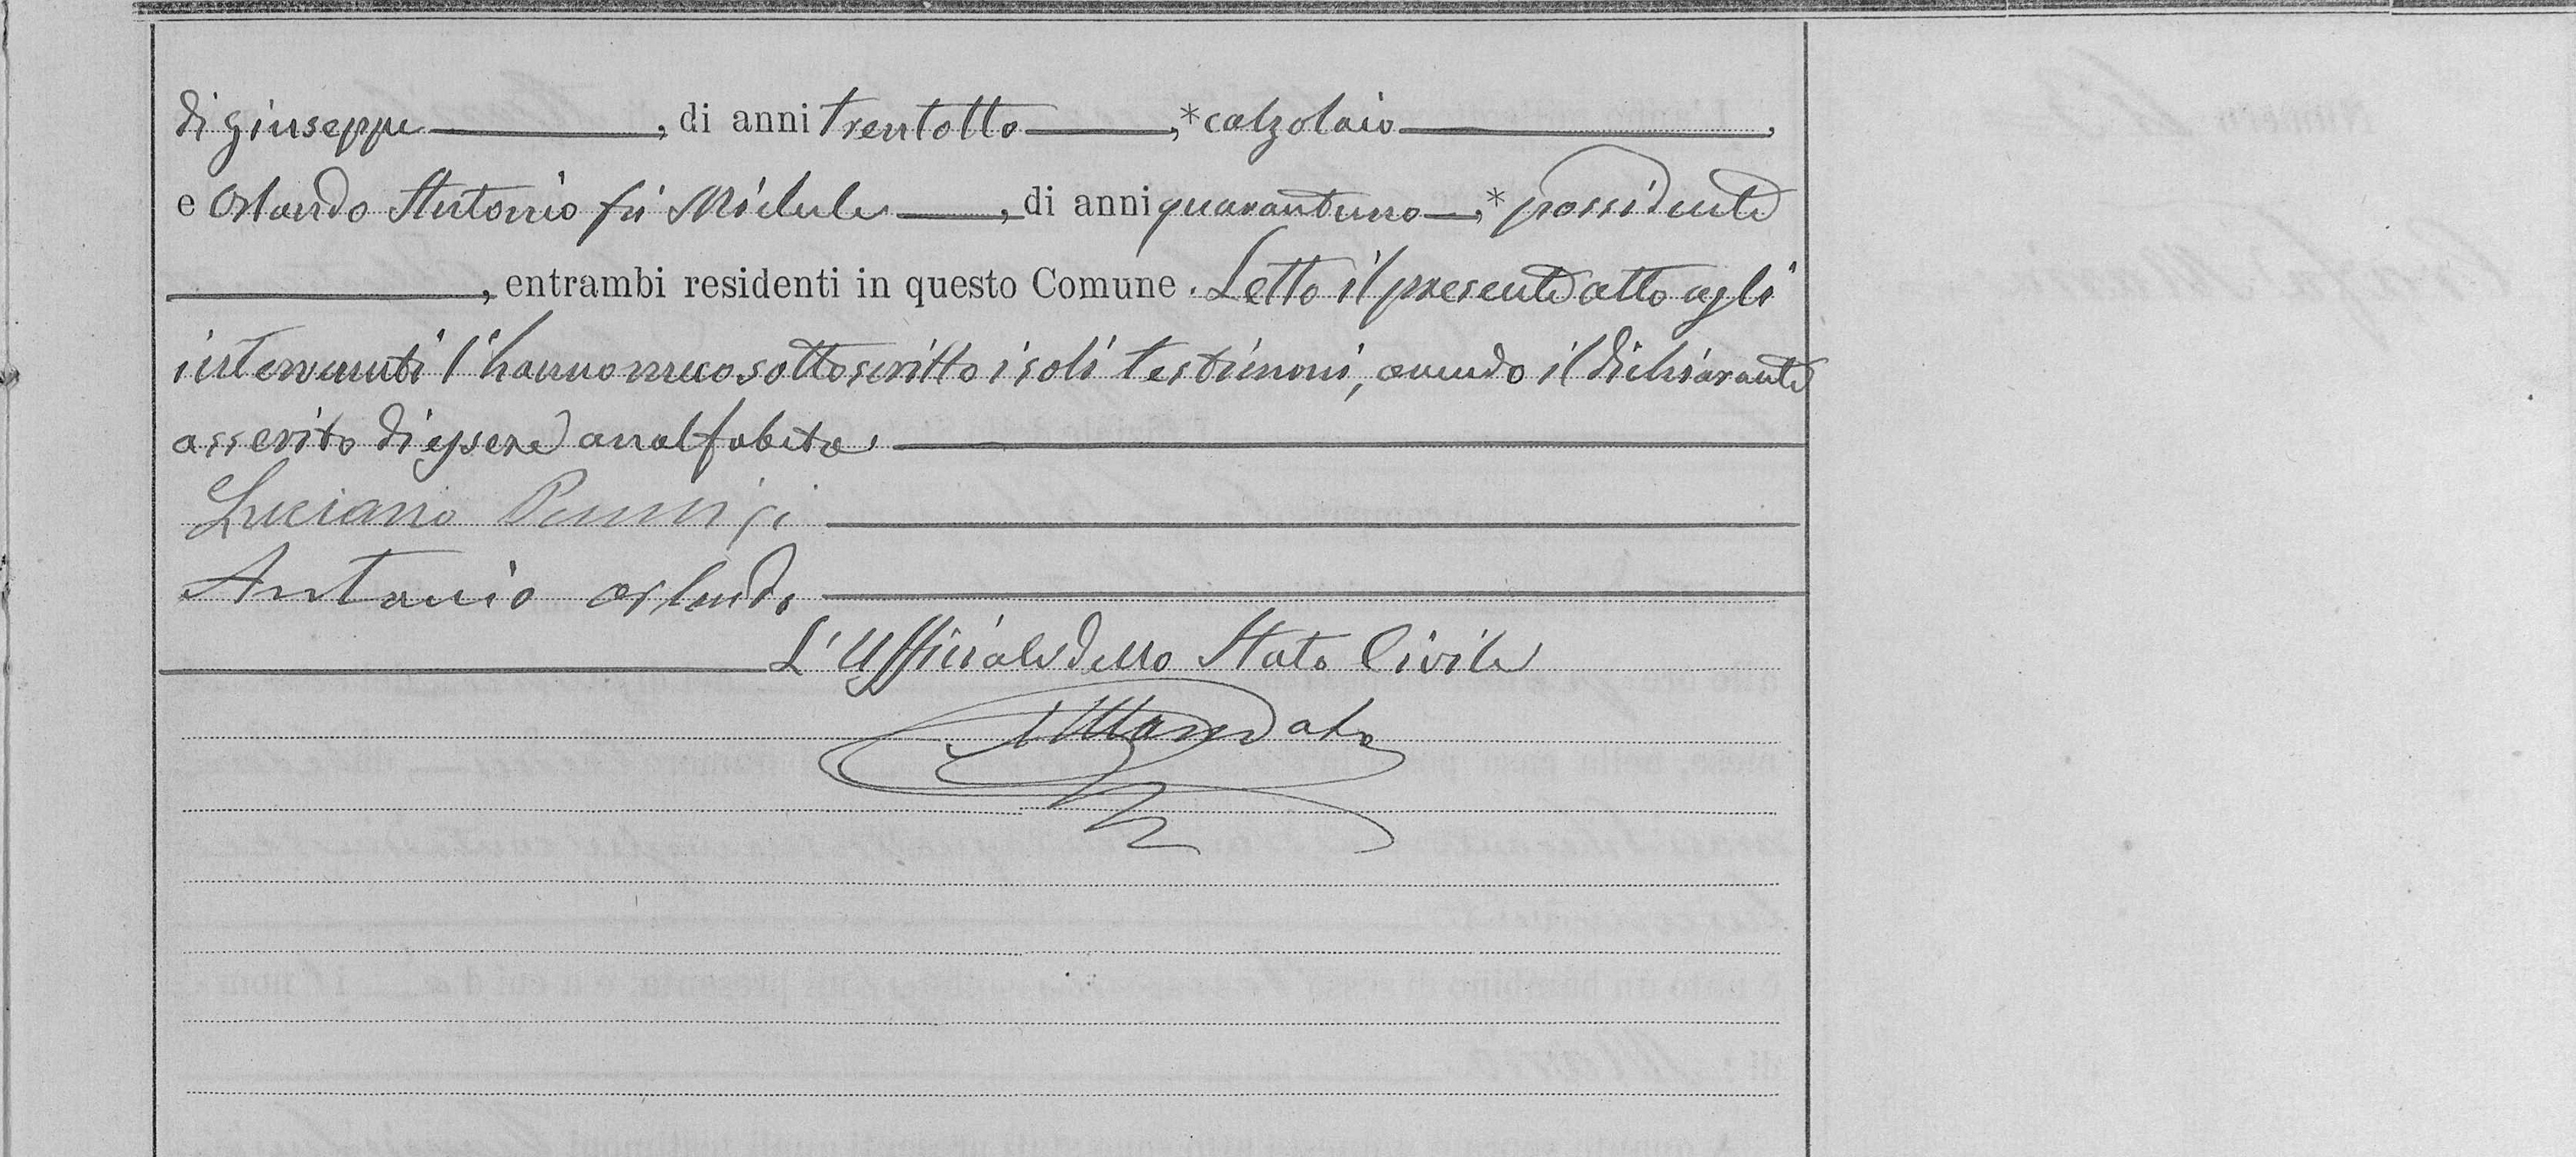 di Giuseppe, di anni trentotto, *calzolaio,
e Orlando Antonio fu Michele, di anni quarantuno, *possidente
, entrambi residenti in questo Comune. Letto il presente atto agli
intervenuti l'hanno meco sottoscritto i soli testimoni, avendo il dichiarante
asserito di essere analfabeta.
Luciano
Antonio Orlando
L'Ufficiale dello Stato Civile